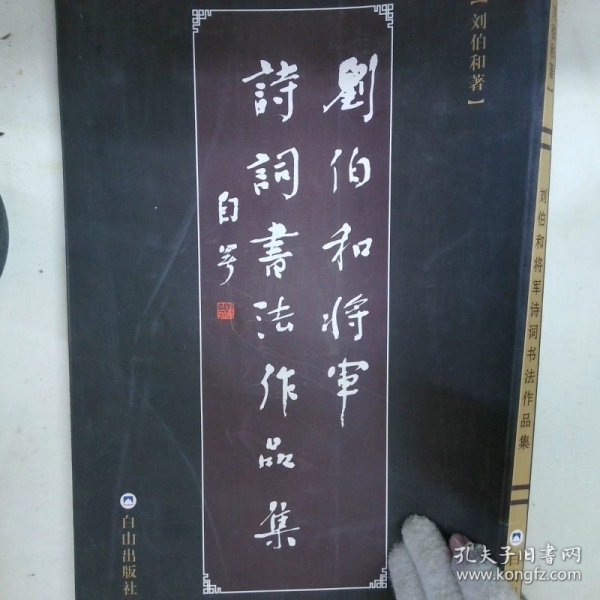 【刘伯和著】
劉伯和将軍
詩詞書法作品集
白山出版社
刘伯和将军诗词书法作品集
孔夫子旧书网
www.kongfz.com